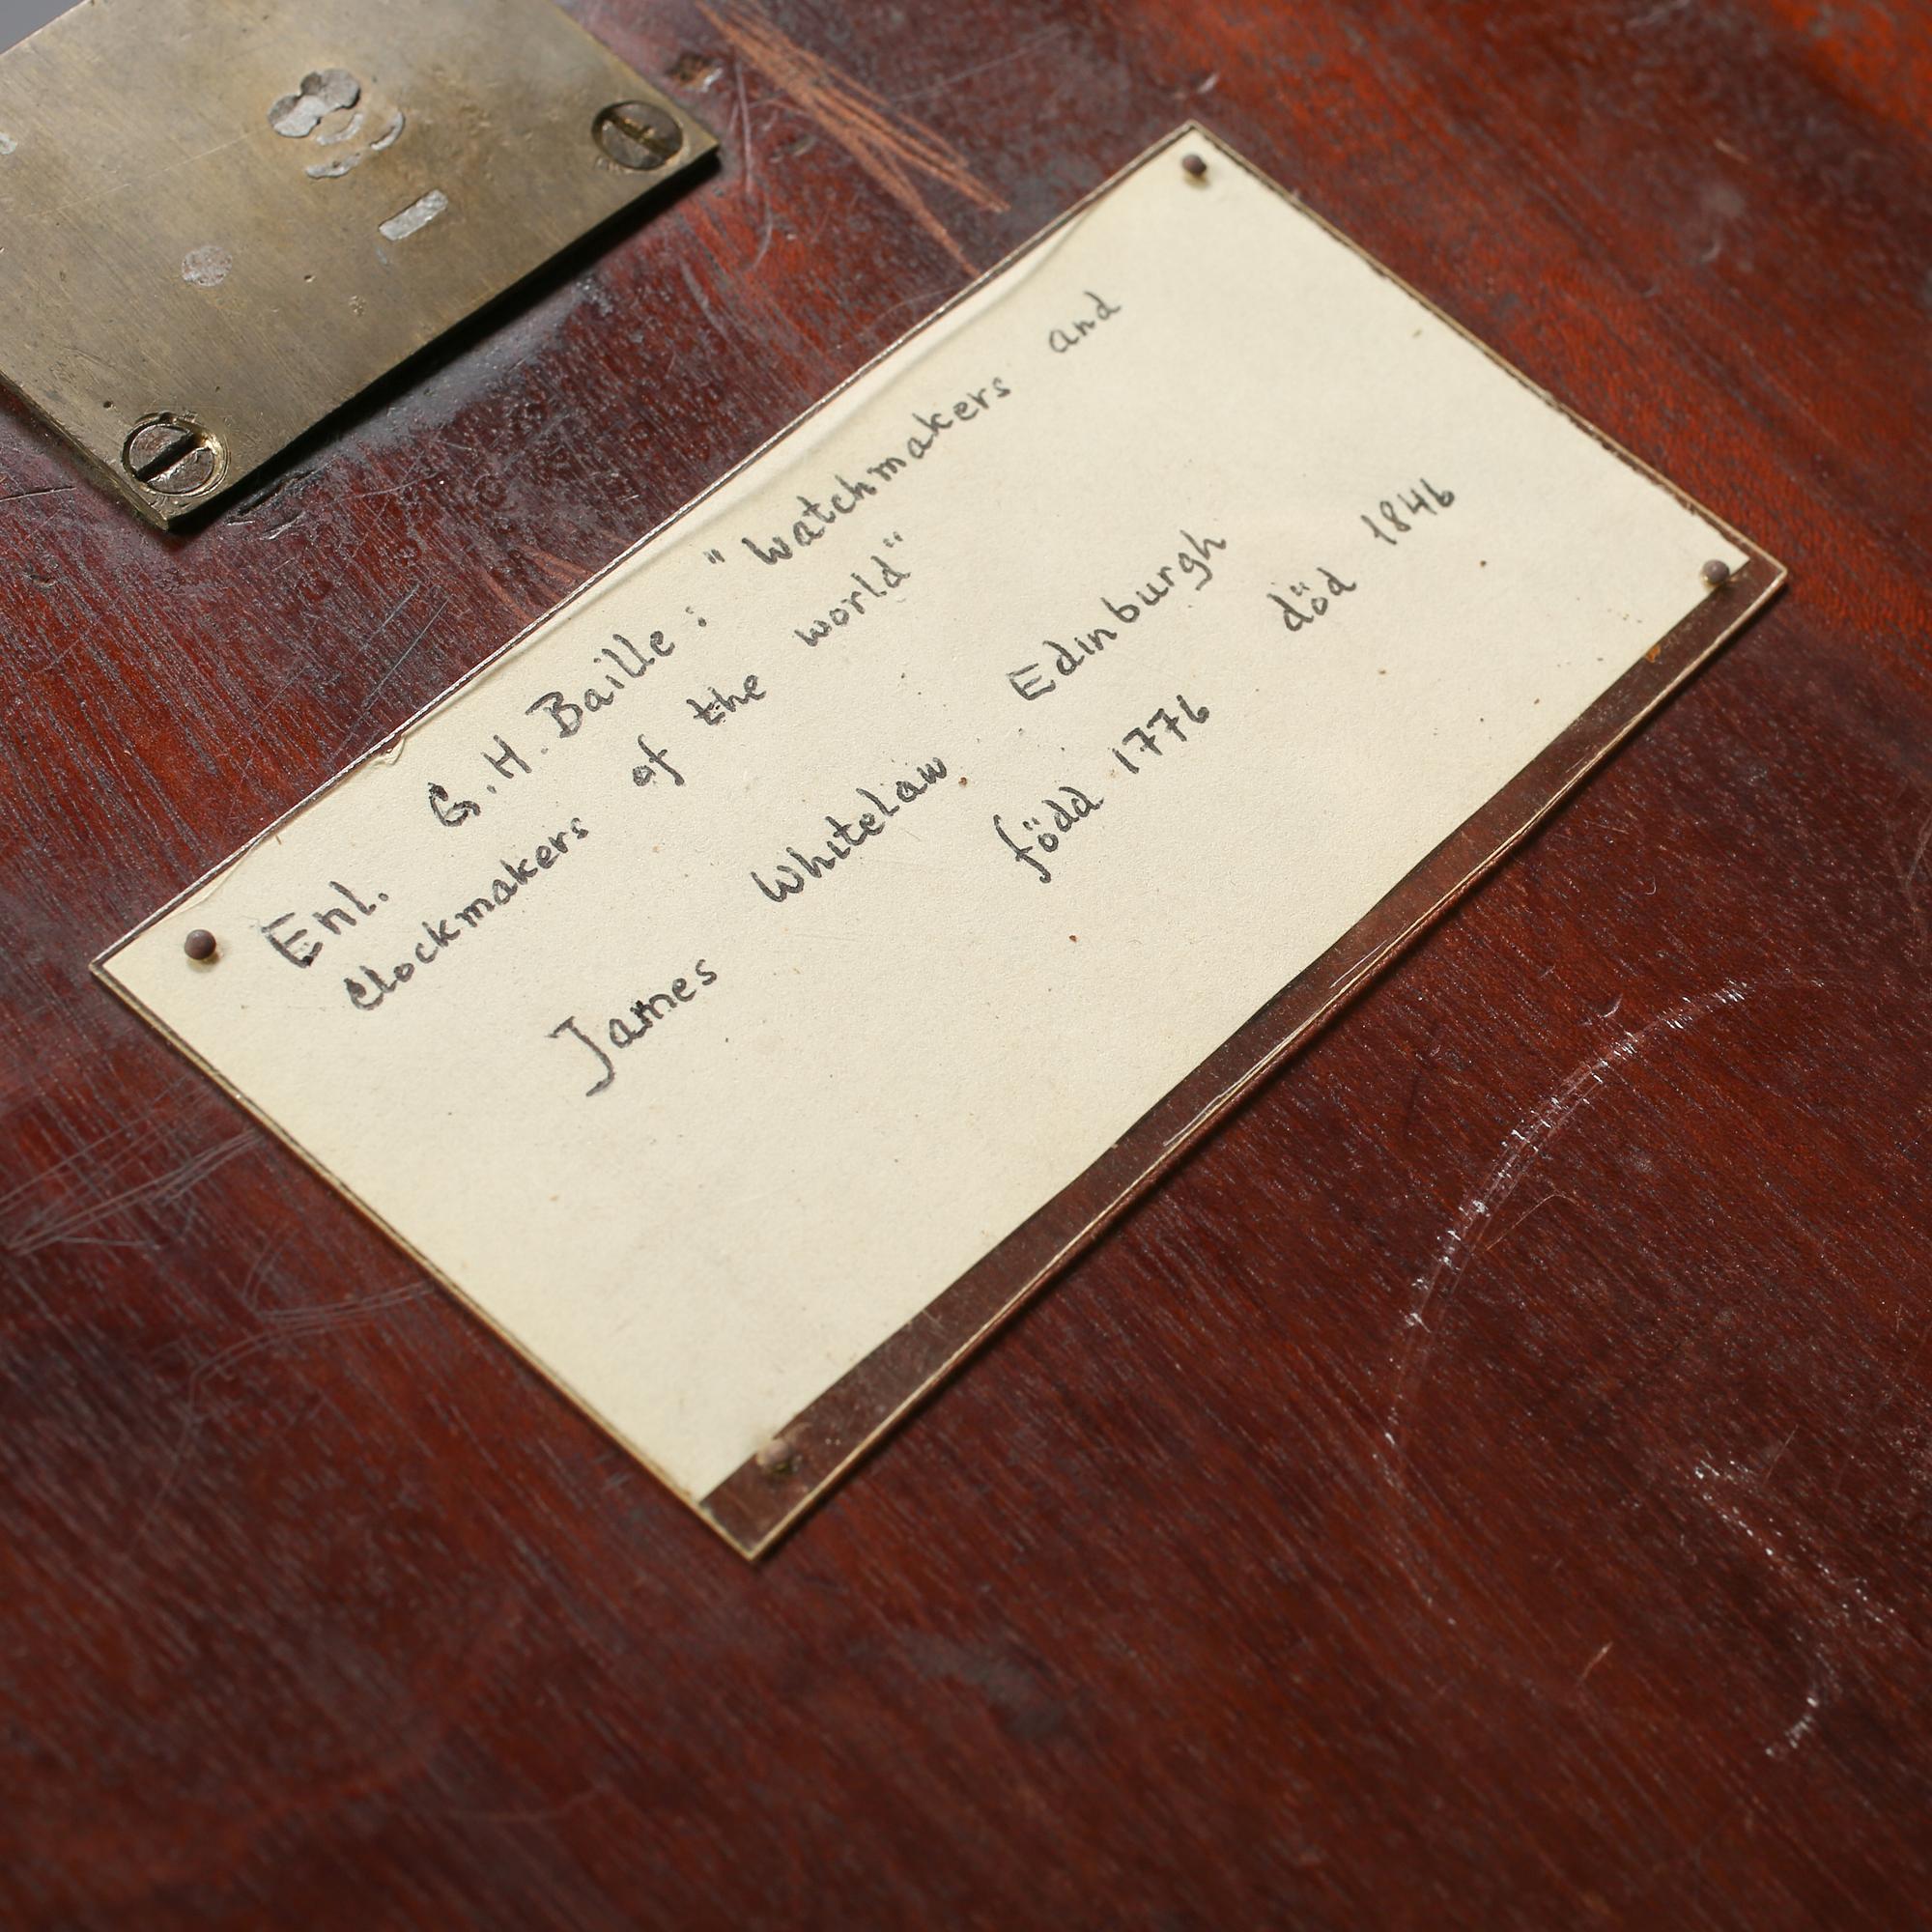 Enl. G.H. Baille: "Watchmakers and
Clockmakers of the world"
James Whitelaw Edinburgh
född 1776 död 1846